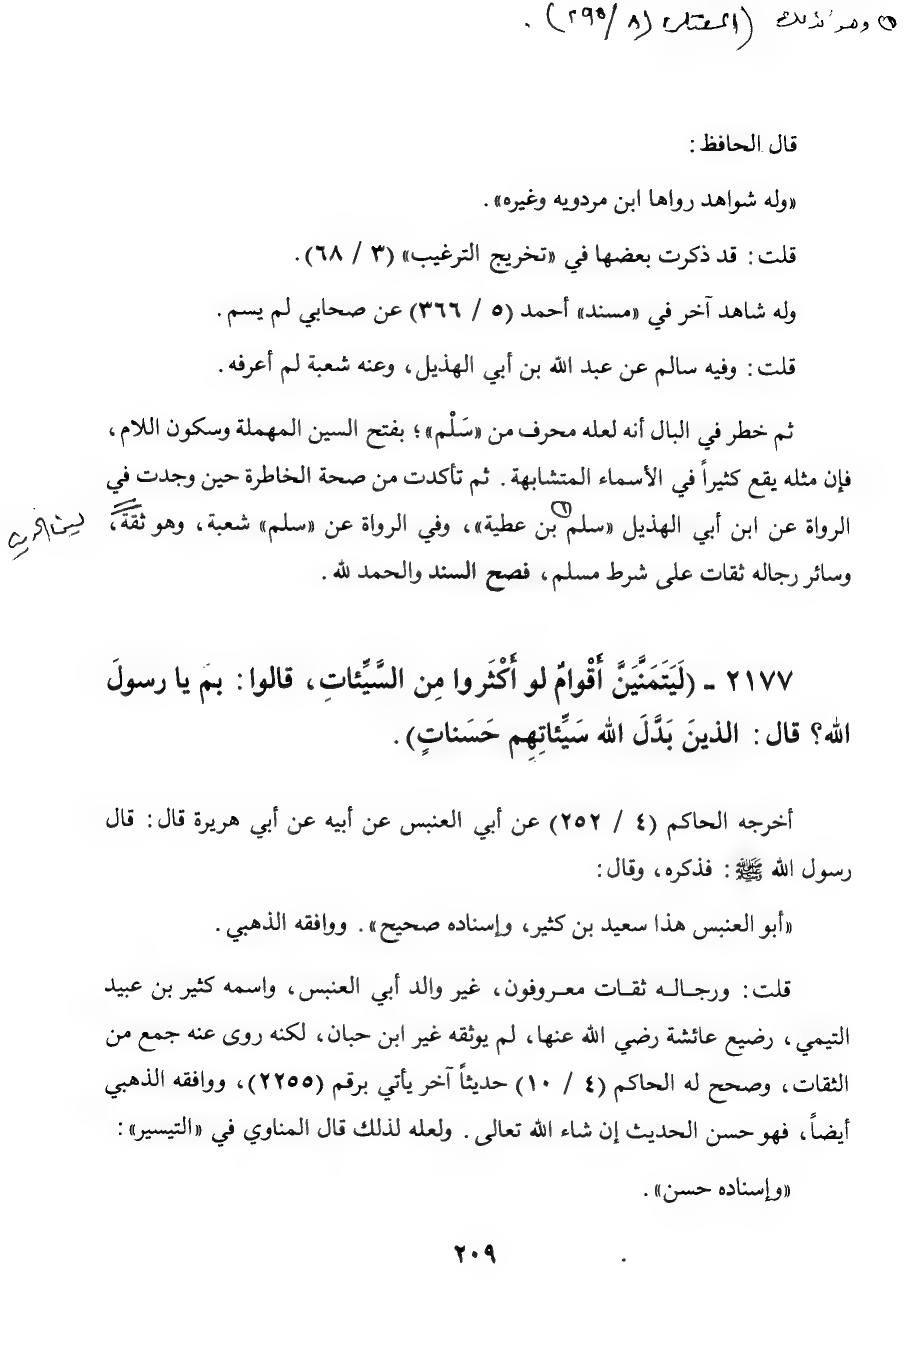 (١) وهو كذلك (المختارة (٨/٢٩٥).
قال الحافظ:
«وله شواهد رواها ابن مردويه وغيره».
قلت: قد ذكرت بعضها في «تخريج الترغيب» (٣ / ٦٨).
وله شاهد آخر في «مسند» أحمد (٥ / ٣٦٦) عن صحابي لم يسم.
قلت: وفيه سالم عن عبد الله بن أبي الهذيل، وعنه شعبة لم أعرفه.
ثم خطر في البال أنه لعله محرف من «سَلْم»؛ بفتح السين المهملة وسكون اللام،
فإن مثله يقع كثيراً في الأسماء المتشابهة. ثم تأكدت من صحة الخاطرة حين وجدت في
الرواة عن ابن أبي الهذيل «سلم (١) بن عطية»، وفي الرواة عن «سلم» شعبة، وهو ثقة،
وسائر رجاله ثقات على شرط مسلم، فصح السند والحمد لله.
٢١٧٧ - (لَيَتَمَنَّيَنَّ أَقْوامٌ لو أَكْثَروا مِن السَّيِّئاتِ، قالوا: بمَ يا رسولَ
الله؟ قال: الذينَ بَدَّلَ الله سَيِّئاتِهِم حَسَناتٍ).
أخرجه الحاكم (٤ / ٢٥٢) عن أبي العنبس عن أبيه عن أبي هريرة قال: قال
رسول الله ﷺ: فذكره، وقال:
«أبو العنبس هذا سعيد بن كثير، وإسناده صحيح». ووافقه الذهبي.
قلت: ورجاله ثقات معروفون، غير والد أبي العنبس، واسمه كثير بن عبيد
التيمي، رضيع عائشة رضي الله عنها، لم يوثقه غير ابن حبان، لكنه روى عنه جمع من
الثقات، وصحح له الحاكم (٤ / ١٠) حديثاً آخر يأتي برقم (٢٢٥٥)، ووافقه الذهبي
أيضاً، فهو حسن الحديث إن شاء الله تعالى. ولعله لذلك قال المناوي في «التيسير»:
«وإسناده حسن».
٢٠٩